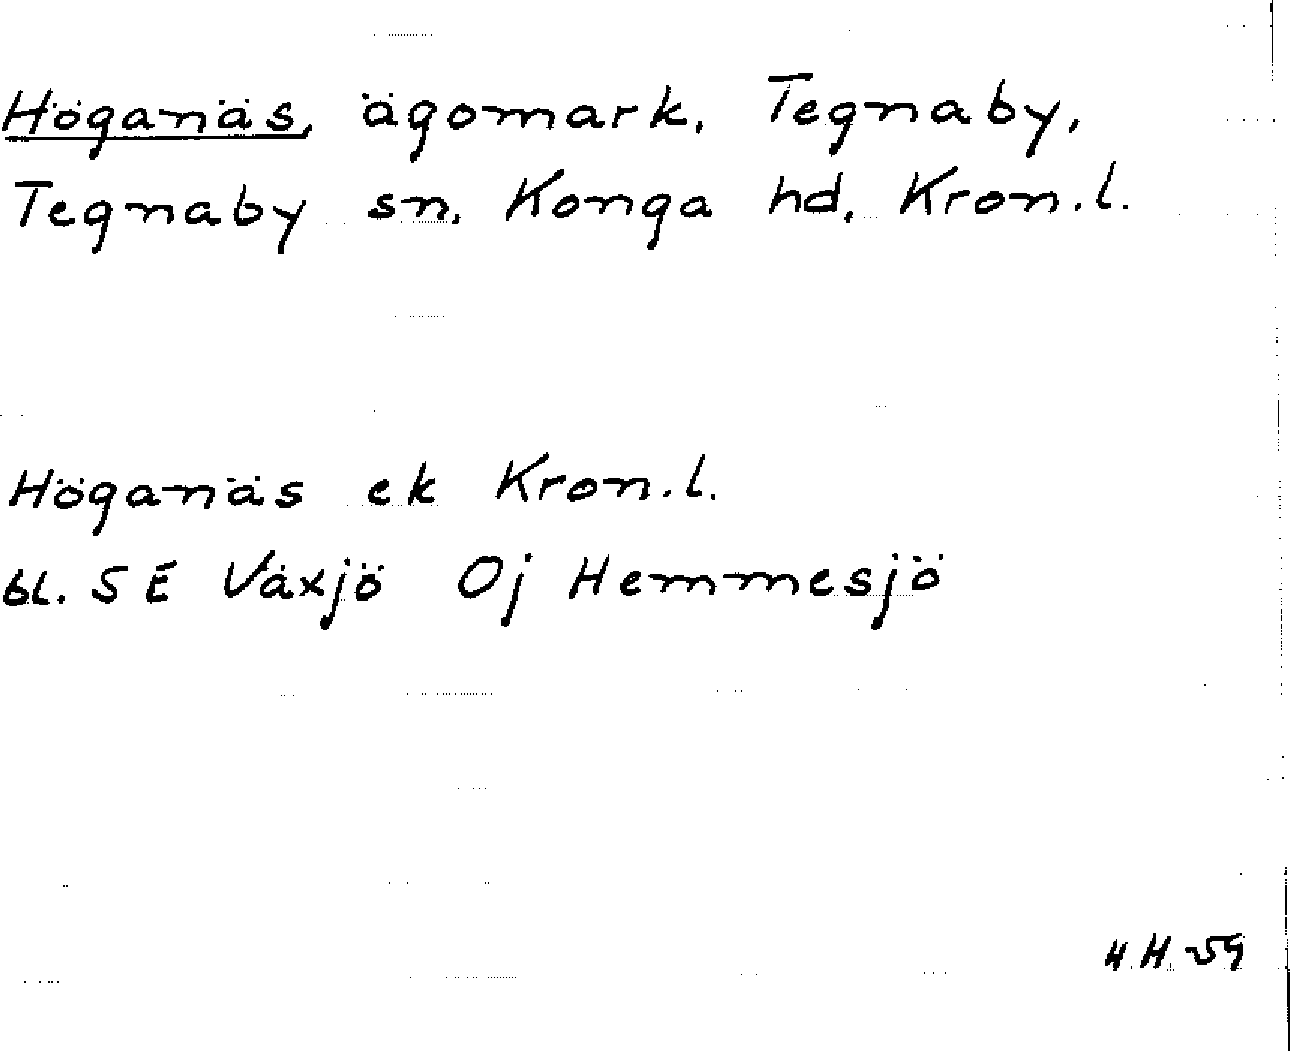 Höganäs, ägomark, Tegnaby,
Tegnaby sn, Konga hd, Kron.l.
Höganäs ek Kron.l.
bl. SE Växjö Oj Hemmesjö
HH-59